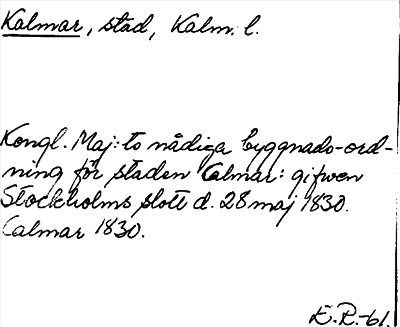 Kalmar, stad, Kalm. l.
Kongl. Maj:ts nådiga byggnads-ord-
ning för staden Calmar: gifwen
Stockholms slott d. 28 maj 1830.
Calmar 1830.
E.R.-61.